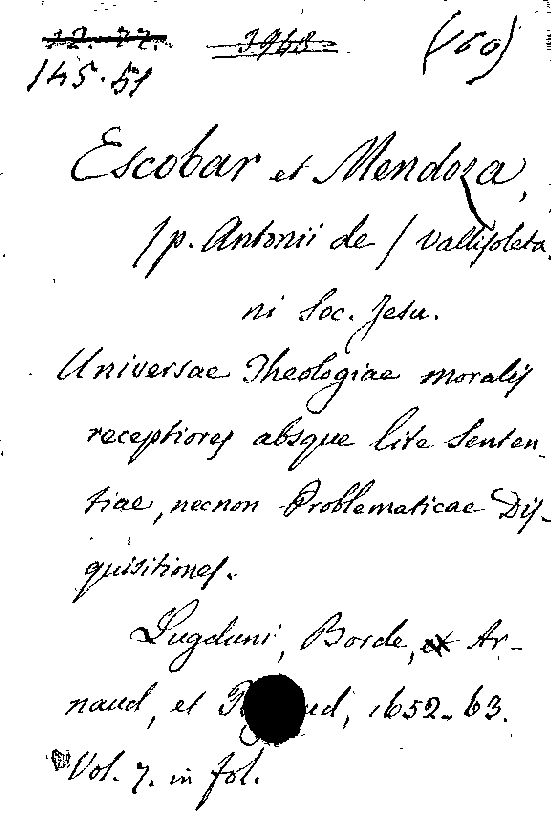 12.77. 3963 (160)
145.51
Escobar et Mendoza,
/p. Antonii de / Vallisoleta
ni Soc. Jesu.
Universae Theologiae moralis
receptiores absque lite Senten-
tiae, necnon Problematicae Dis-
quisitiones.
Lugduni, Borde, et Ar-
naud, et 1652-63.
Vol. 7. in fol.